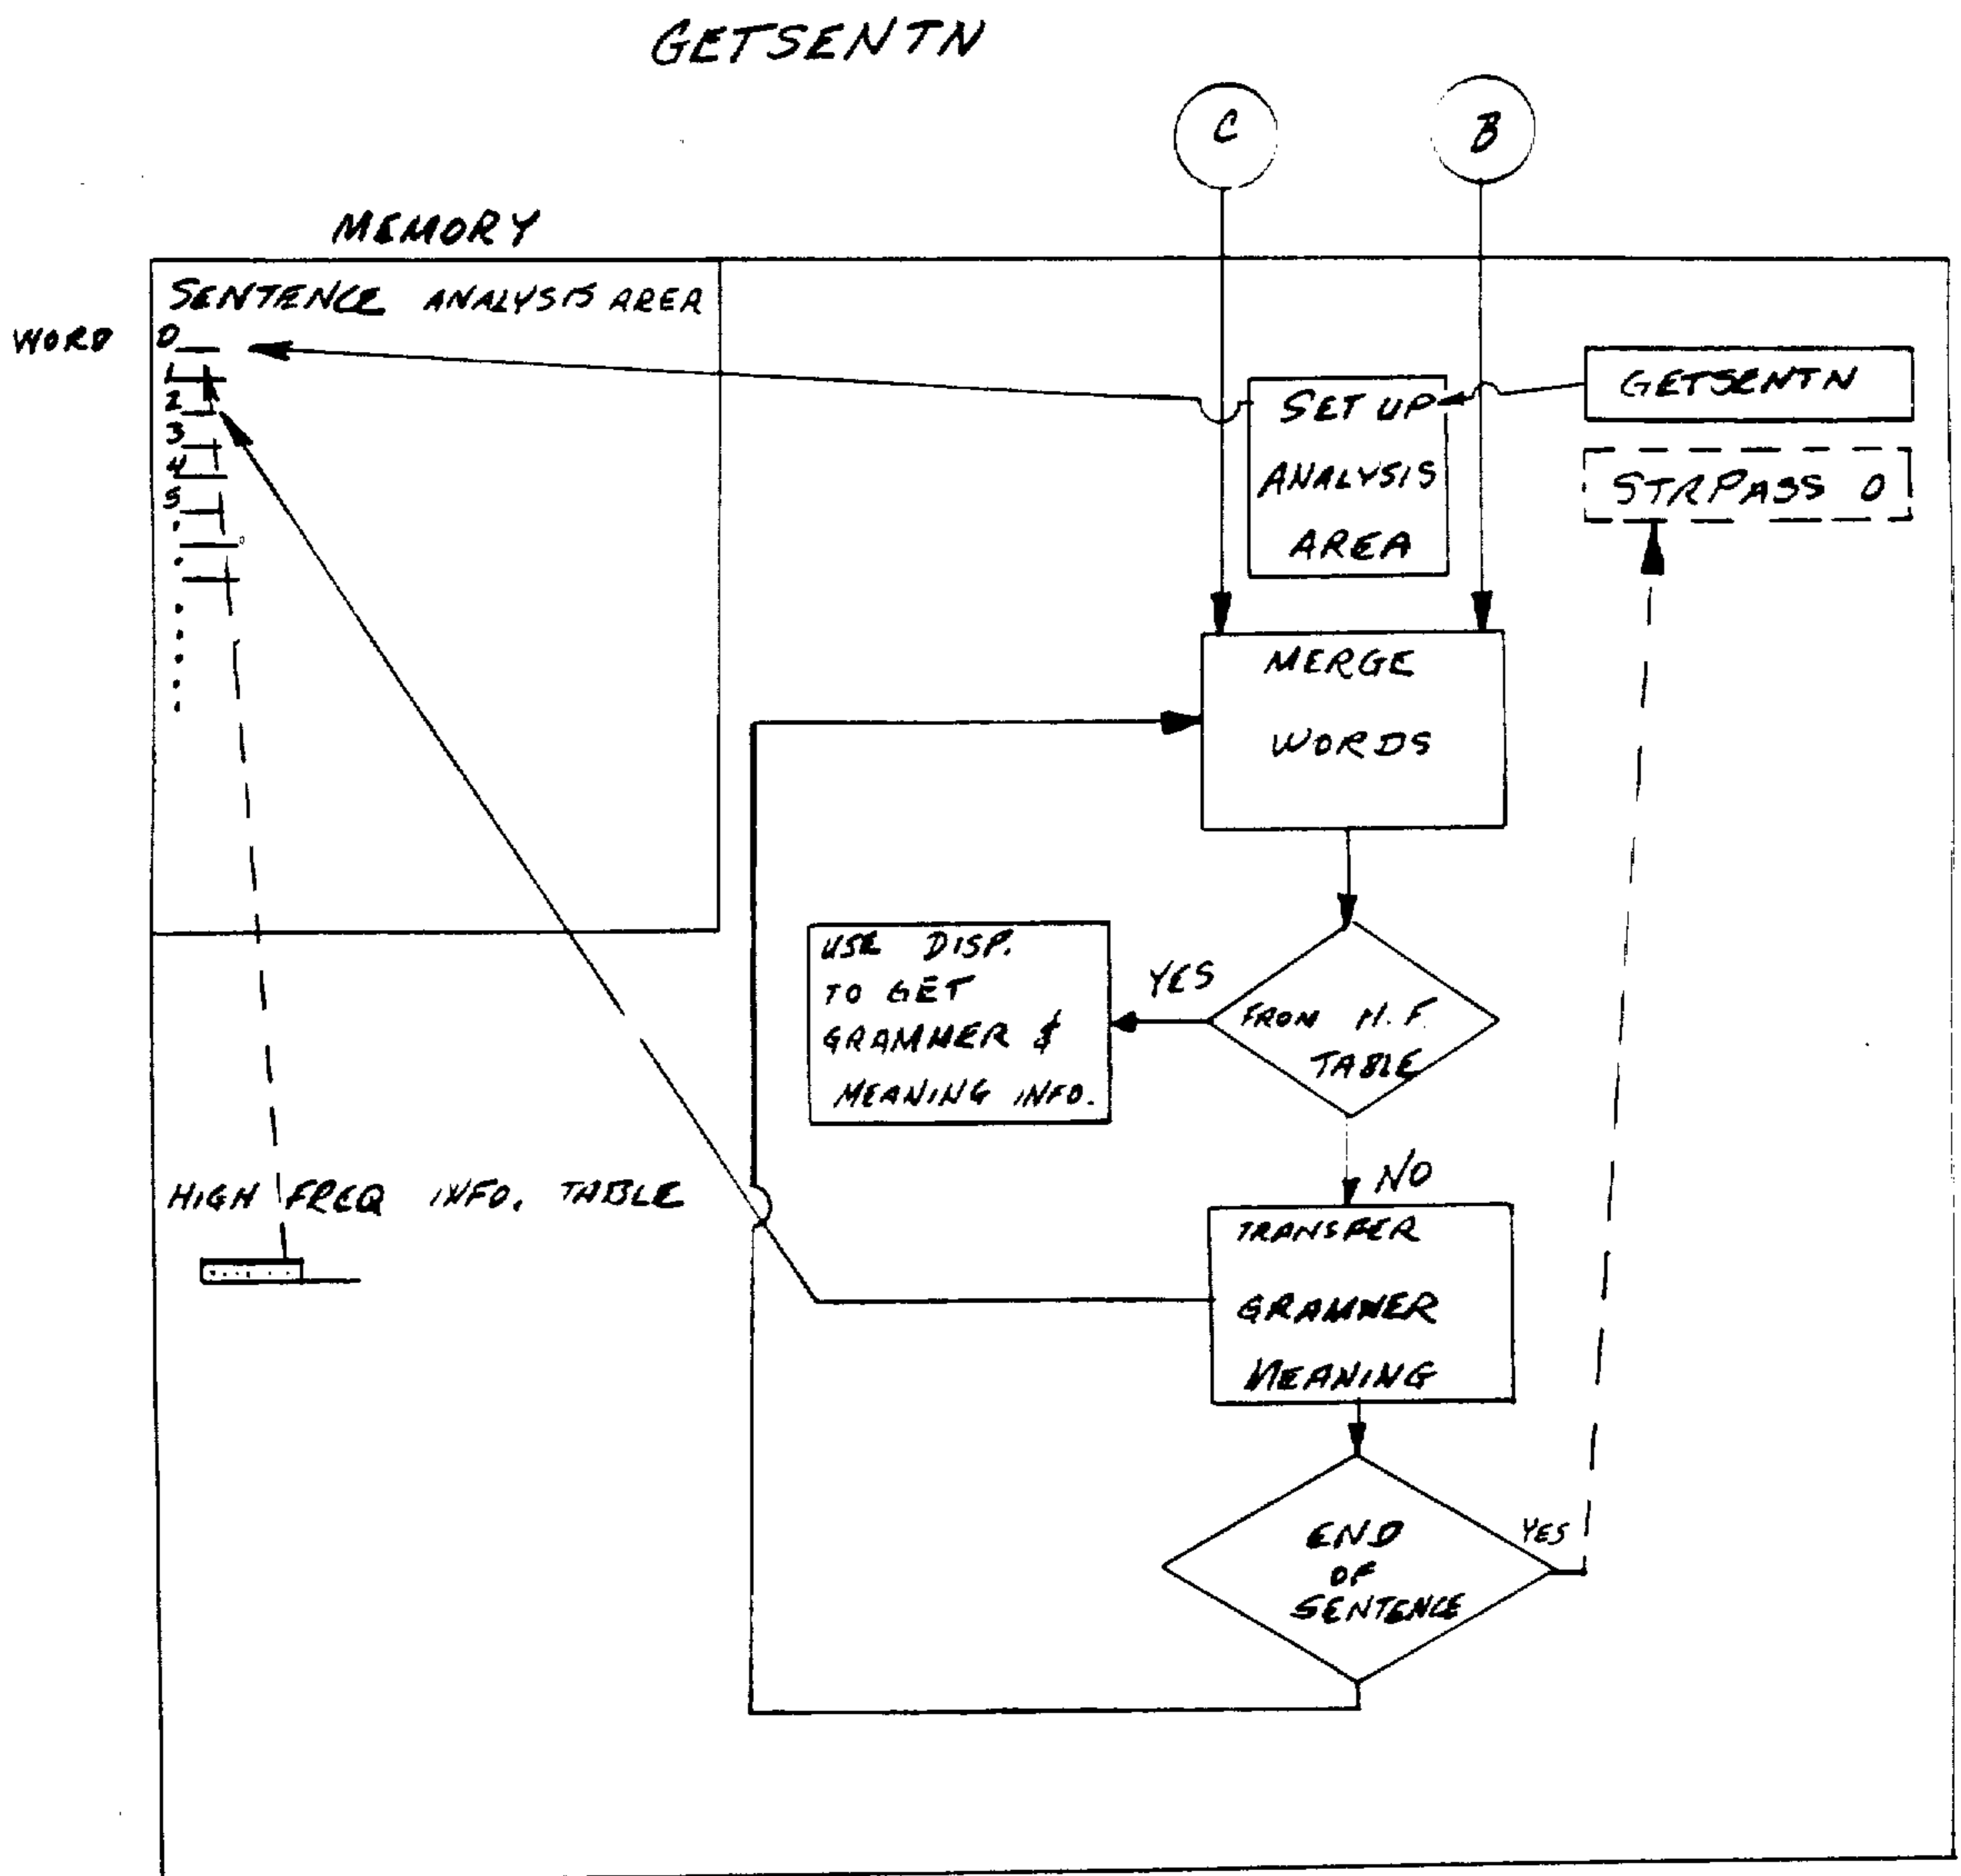 GETSENTN
C
B
MEMORY
SENTENCE ANALYSIS AREA
WORD 0
1
2
3
4
5
GETSENTN
STRPASS 0
SET UP
ANALYSIS
AREA
MERGE
WORDS
USE DISP.
TO GET
GRAMMER &
MEANING INFO.
YES
FROM H.F.
TABLE
NO
HIGH FREQ INFO. TABLE
TRANSFER
GRAMMER
MEANING
END
OF
SENTENCE
YES